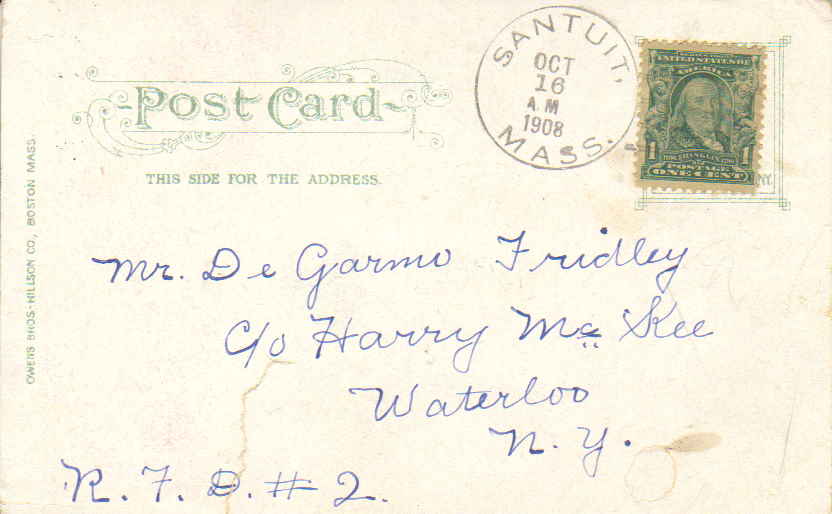 SANTUIT,
OCT
16
A M
1908
MASS.
Post Card
THIS SIDE FOR THE ADDRESS.
UNITED STATES OF
AMERICA
1 FRANKLIN 1
POSTAGE
ONE CENT
NY.
OWENS BROS.-HILLSON CO., BOSTON MASS.
Mr. De Garmo Fridley
C/o Harry Mc Kee
Waterloo
N. Y.
R. F. D. # 2.